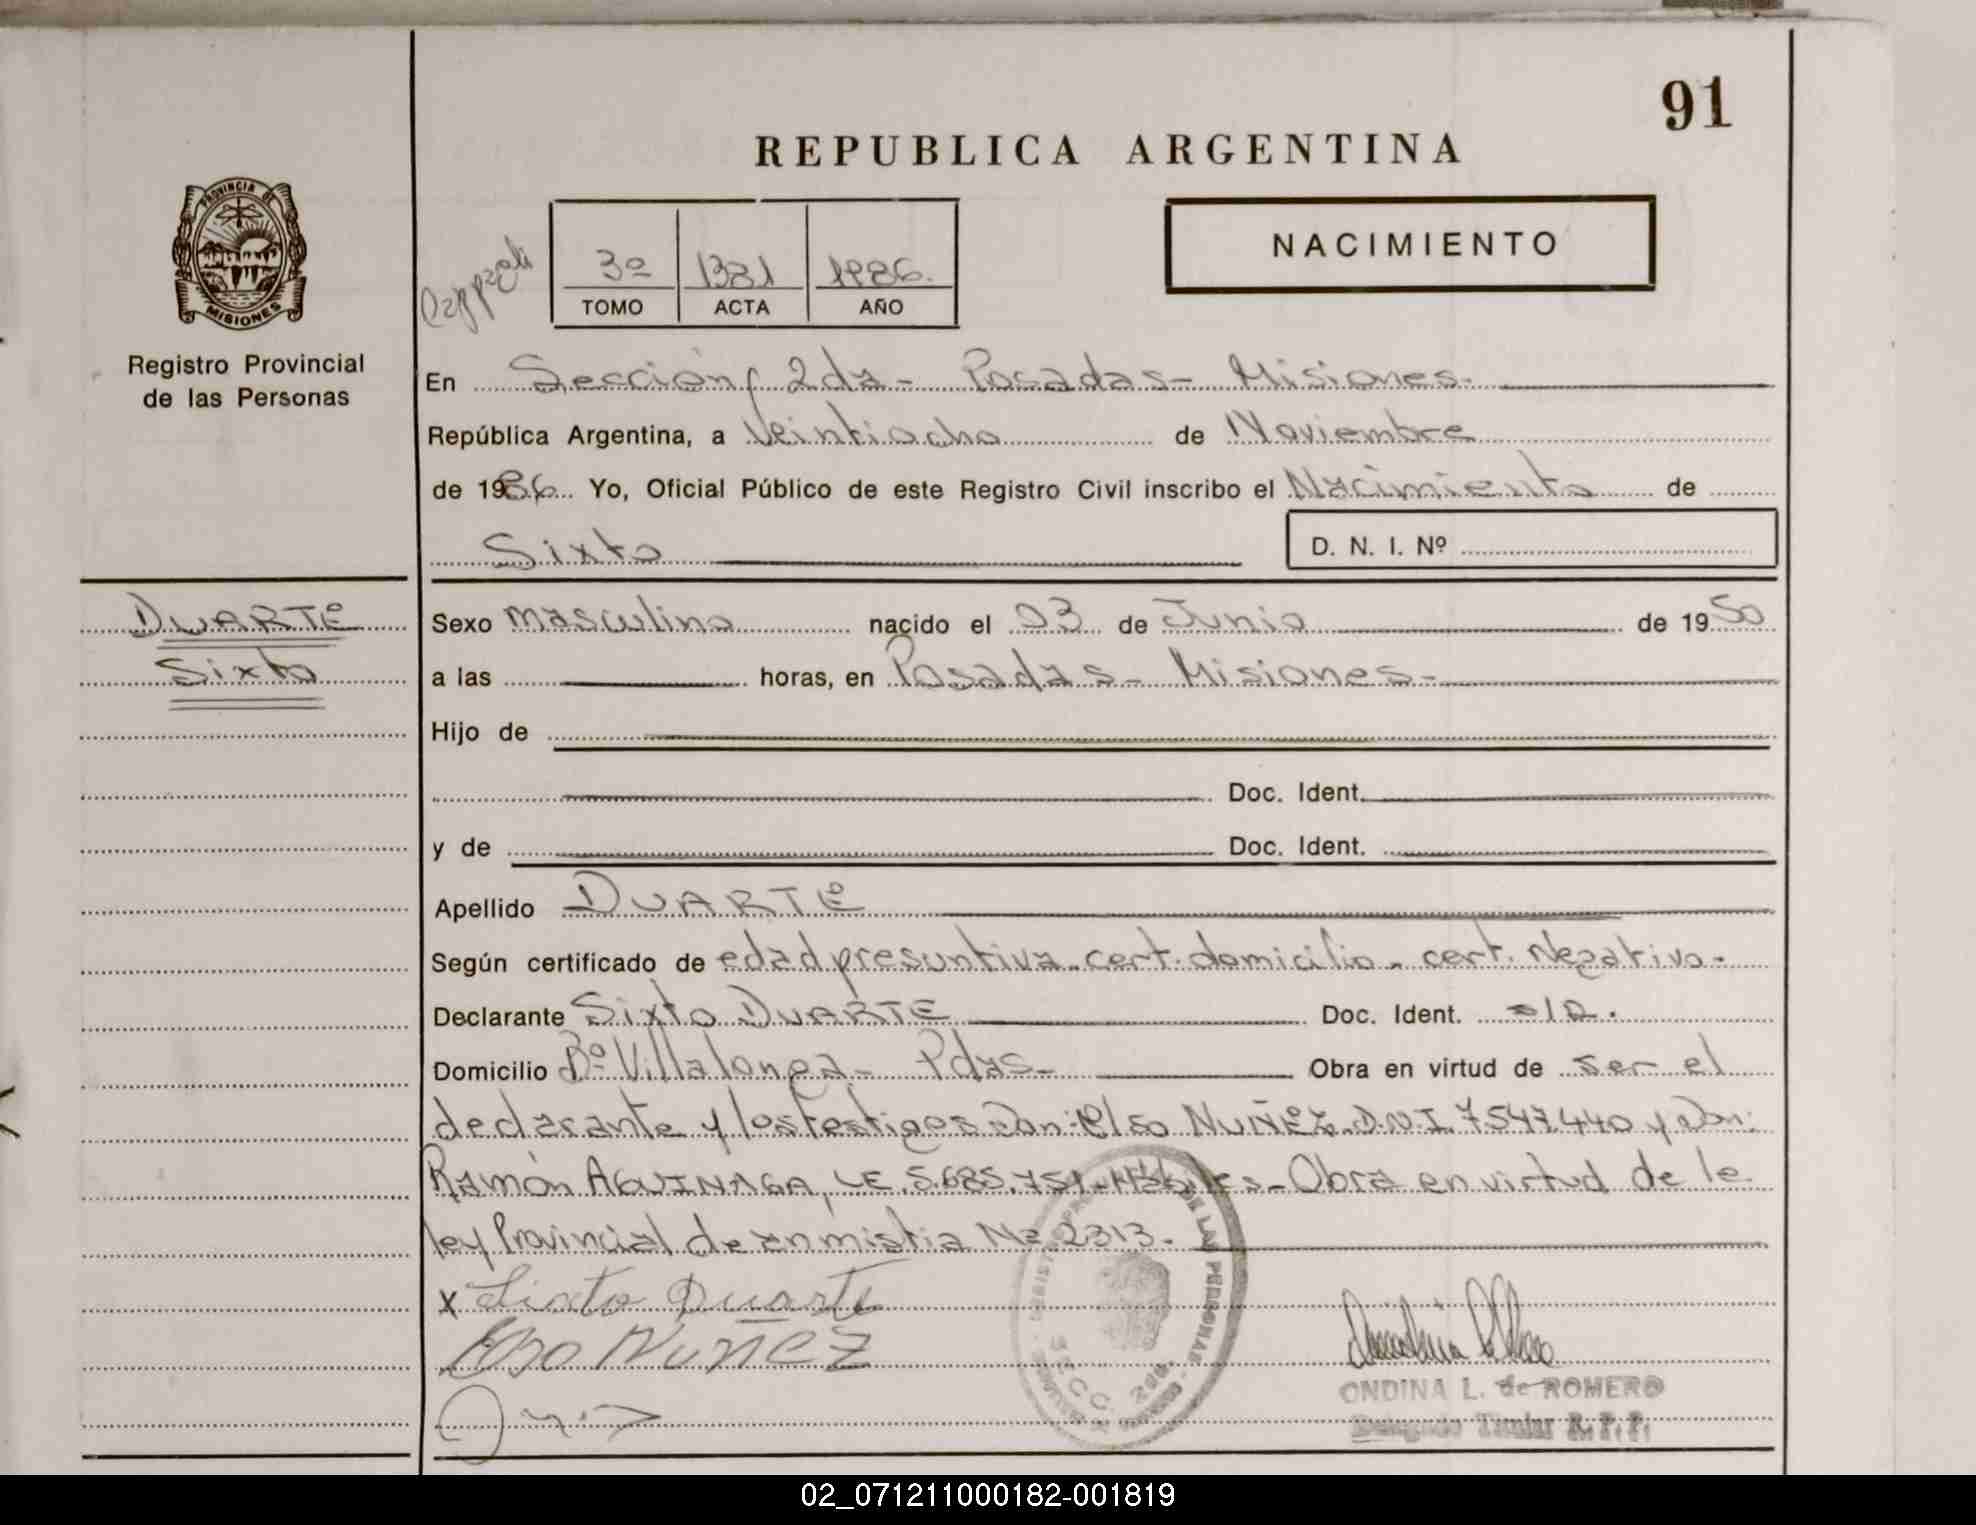 91
REPUBLICA ARGENTINA
PROVINCIA DE
MISIONES
Registro Provincial
de las Personas
3º 1381 1986.
TOMO ACTA AÑO
NACIMIENTO
En Sección 2da - Posadas - Misiones.
República Argentina, a Veintiocho de Noviembre
de 1986 Yo, Oficial Público de este Registro Civil inscribo el Nacimiento de
Sixto D. N. I. Nº
DUARTE
Sixto
Sexo masculino nacido el 03 de Junio de 1950
a las horas, en Posadas - Misiones -
Hijo de
Doc. Ident.
y de Doc. Ident.
Apellido DUARTE
Según certificado de edad presuntiva - cert. domicilio - cert. Negativo -
Declarante Sixto DUARTE Doc. Ident.
Domicilio Bº Villalonga - Pdas - Obra en virtud de ser el
declarante y los testigos Don: Elso NUÑEZ. D.N.I. 7547.440 y Don:
Ramón AGUINAGA, LE. 5.685.751 - Obra en virtud de le
ley Provincial de anmistia Nº 2313.
x Sixto Duarte
Elso Nuñez
DE LAS PERSONAS
SECC. 2da.
ONDINA L. de ROMERO
Delegado Titular R. P. P.
02_071211000182-001819